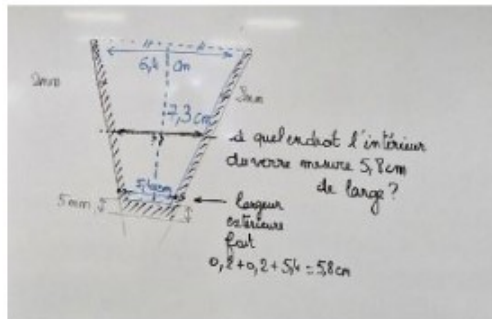 6,4 cm
2mm
2mm
7,3 cm
à quel endroit l'intérieur
du verre mesure 5,8cm
de large?
5,4cm
5mm
largeur
extérieure
fait
0,2+0,2+5,4=5,8cm